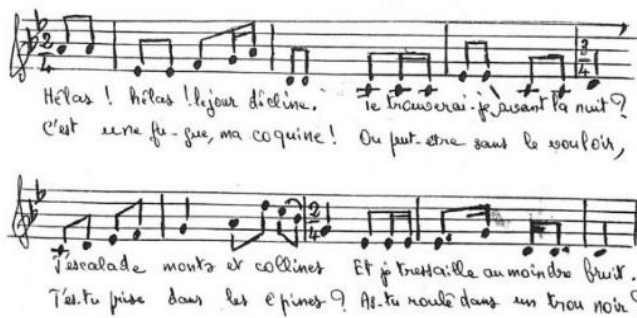 2/4 3/4
Hélas ! hélas ! le jour décline. Te trouverai-je avant la nuit ?
C'est une fu-gue, ma coquine ! Ou peut-etre sans le vouloir,
2/4
J'escalade monts et collines Et je tressaille au moindre bruit.
T'es-tu prise dans les épines ? As-tu roulé dans un trou noir ?